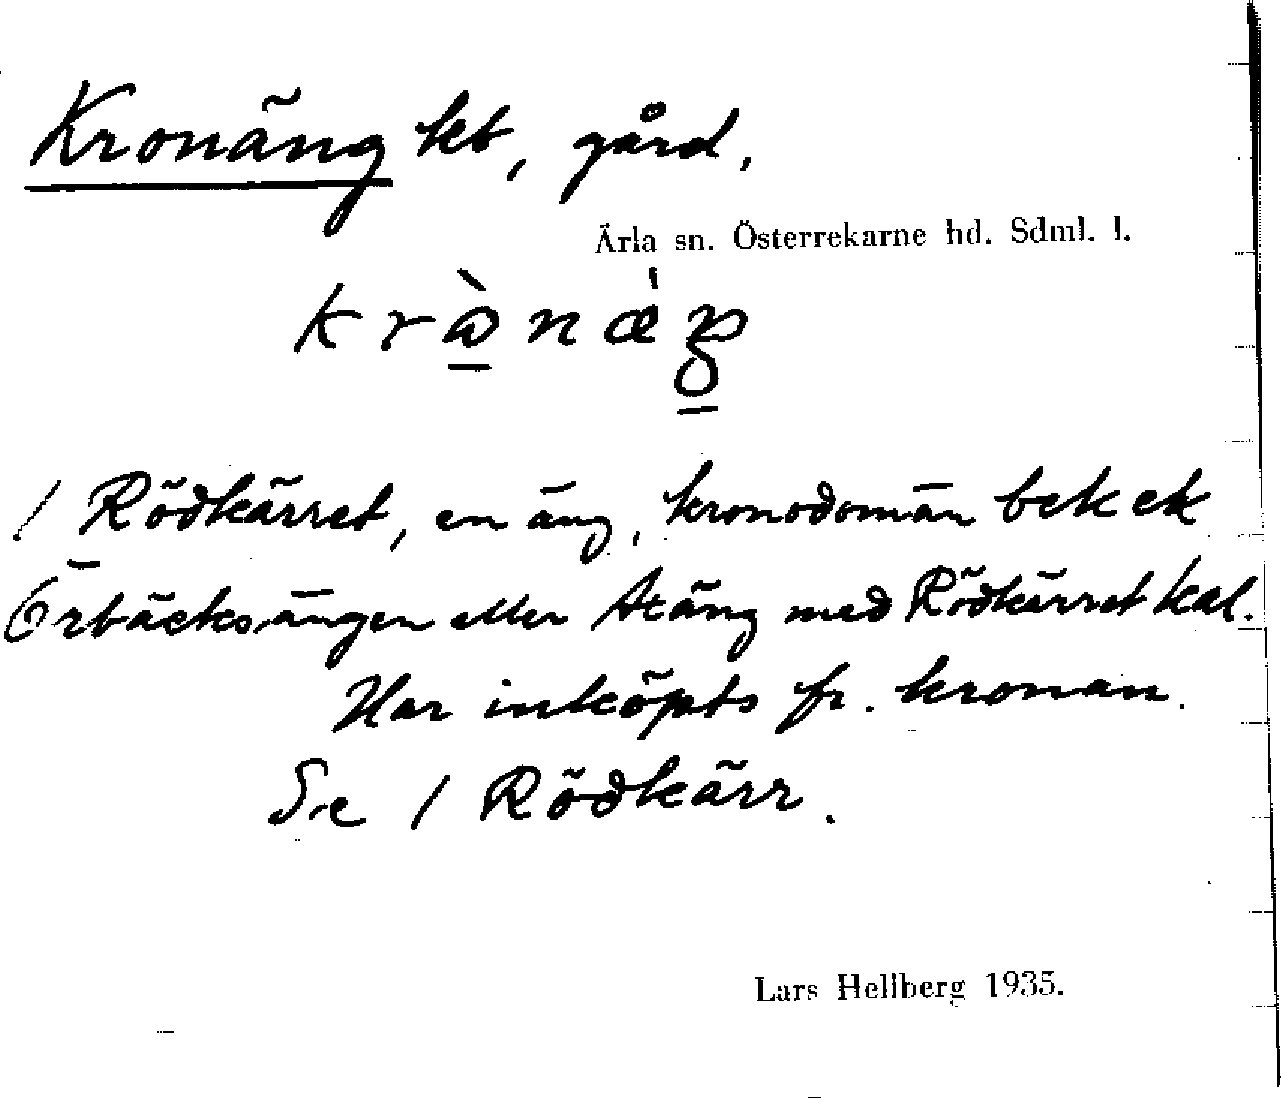 Kronäng kt, gård.
Ärla sn. Österrekarne hd. Sdml. l.
/ Rödkärret, en äng, kronodomän bek ek
Örbäcksängen eller Atäng med Rödkärret kal.
Har inköpts fr. kronan.
Se / Rödkärr.
Lars Hellberg 1935.